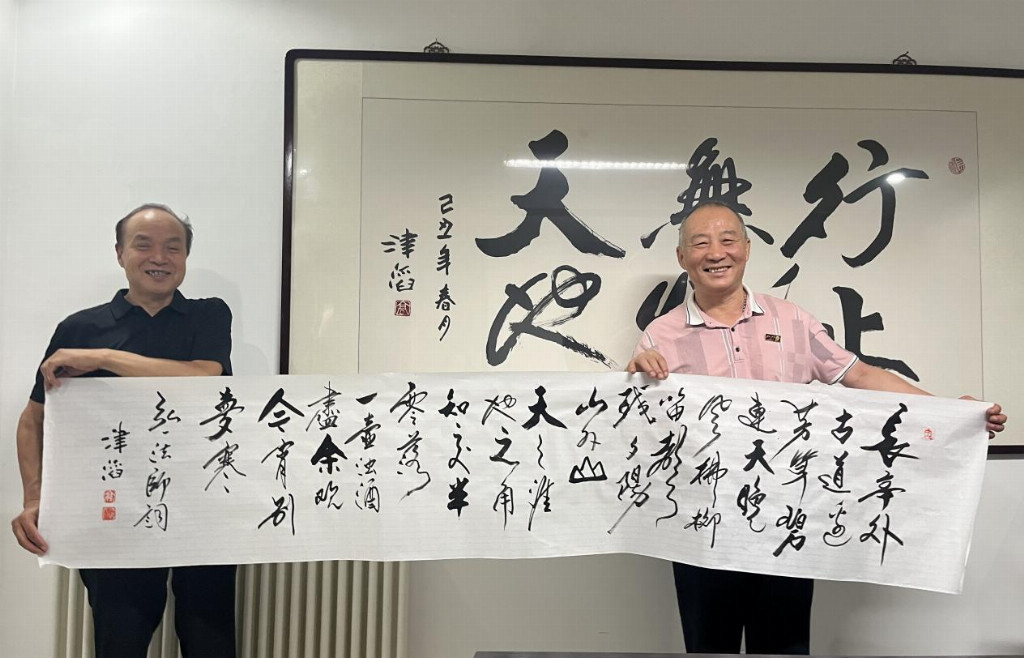 行止
無
天地
己丑年春月
津滔
長亭外
古道邊
芳草碧
連天晚
风拂柳
笛聲
残夕陽
山外山
天之涯
地之角
知交半
零落
一壺濁酒
盡余歡
今宵别
夢寒
弘一法師詞
津滔